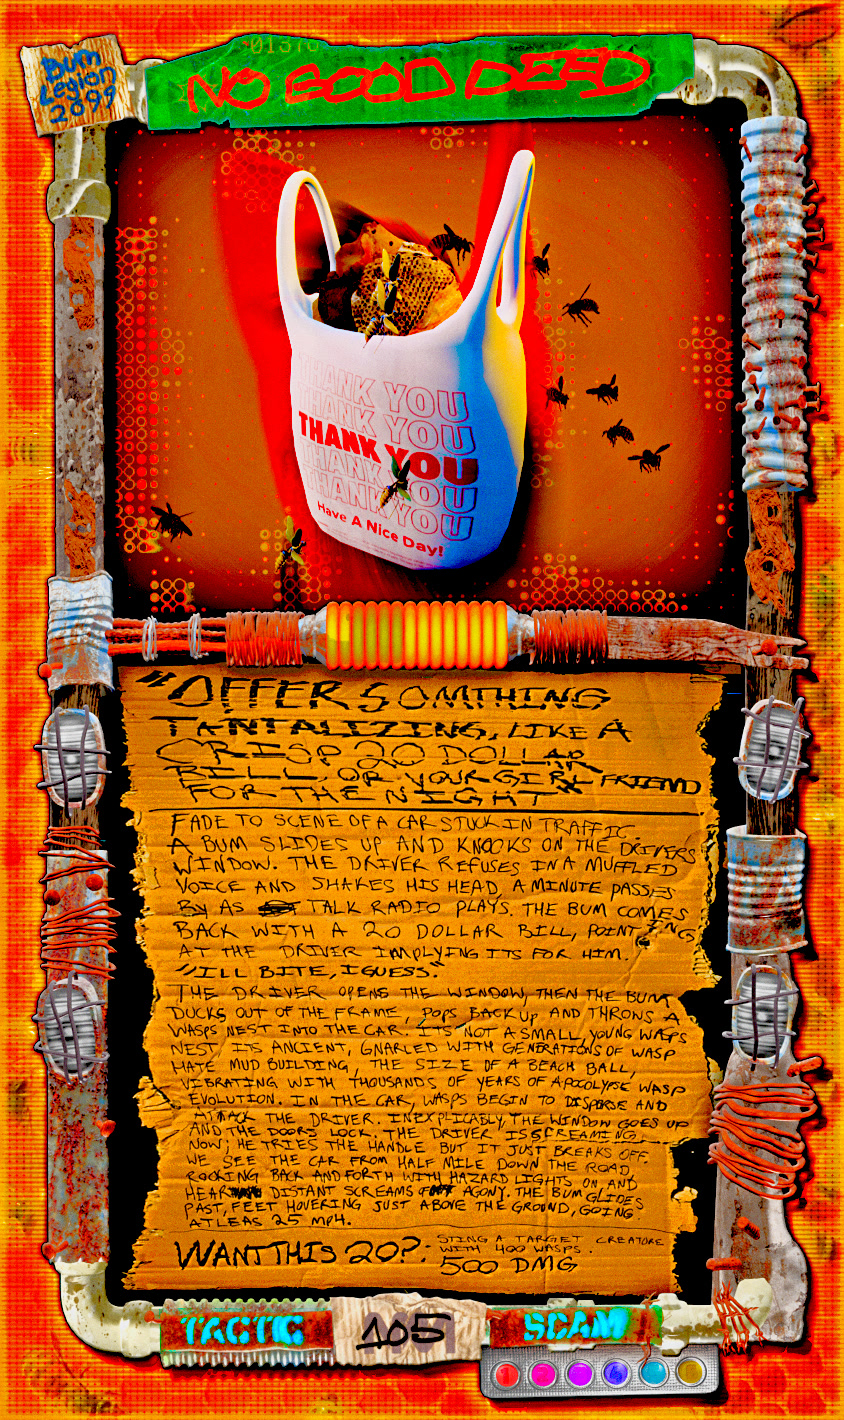 Bum
Legion
2099
01370
NO GOOD DEED
THANK YOU
THANK YOU
THANK YOU
THANK YOU
THANK YOU
Have A Nice Day!
"OFFER SOMTHING
TANTALIZING, LIKE A
CRISP 20 DOLLAR
BILL, OR YOUR GIRLFRIEND
FOR THE NIGHT"
FADE TO SCENE OF A CAR STUCK IN TRAFFIC.
A BUM SLIDES UP AND KNOCKS ON THE DRIVERS
WINDOW. THE DRIVER REFUSES IN A MUFFLED
VOICE AND SHAKES HIS HEAD, A MINUTE PASSES
BY AS TALK RADIO PLAYS. THE BUM COMES
BACK WITH A 20 DOLLAR BILL, POINTING
AT THE DRIVER IMPLYING ITS FOR HIM.
"ILL BITE, I GUESS"
THE DRIVER OPENS THE WINDOW, THEN THE BUM
DUCKS OUT OF THE FRAME, POPS BACK UP AND THROWS A
WASPS NEST INTO THE CAR. ITS NOT A SMALL, YOUNG WASPS
NEST ITS ANCIENT, GNARLED WITH GENERATIONS OF WASP
HATE MUD BUILDING, THE SIZE OF A BEACH BALL,
VIBRATING WITH THOUSANDS OF YEARS OF APOCOLYPSE WASP
EVOLUTION. IN THE CAR, WASPS BEGIN TO DISPERSE AND
ATTACK THE DRIVER. INEXPLICABLY, THE WINDOW GOES UP
AND THE DOORS LOCK. THE DRIVER IS SCREAMING,
NOW, HE TRIES THE HANDLE BUT IT JUST BREAKS OFF.
WE SEE THE CAR FROM HALF MILE DOWN THE ROAD,
ROCKING BACK AND FORTH WITH HAZARD LIGHTS ON, AND
HEAR DISTANT SCREAMS OF AGONY. THE BUM GLIDES
PAST, FEET HOVERING JUST ABOVE THE GROUND, GOING
ATLEAS 25 MPH.
WANT THIS 20?: STING A TARGET CREATURE
WITH 400 WASPS.
500 DMG
TACTIC 105 SCAM